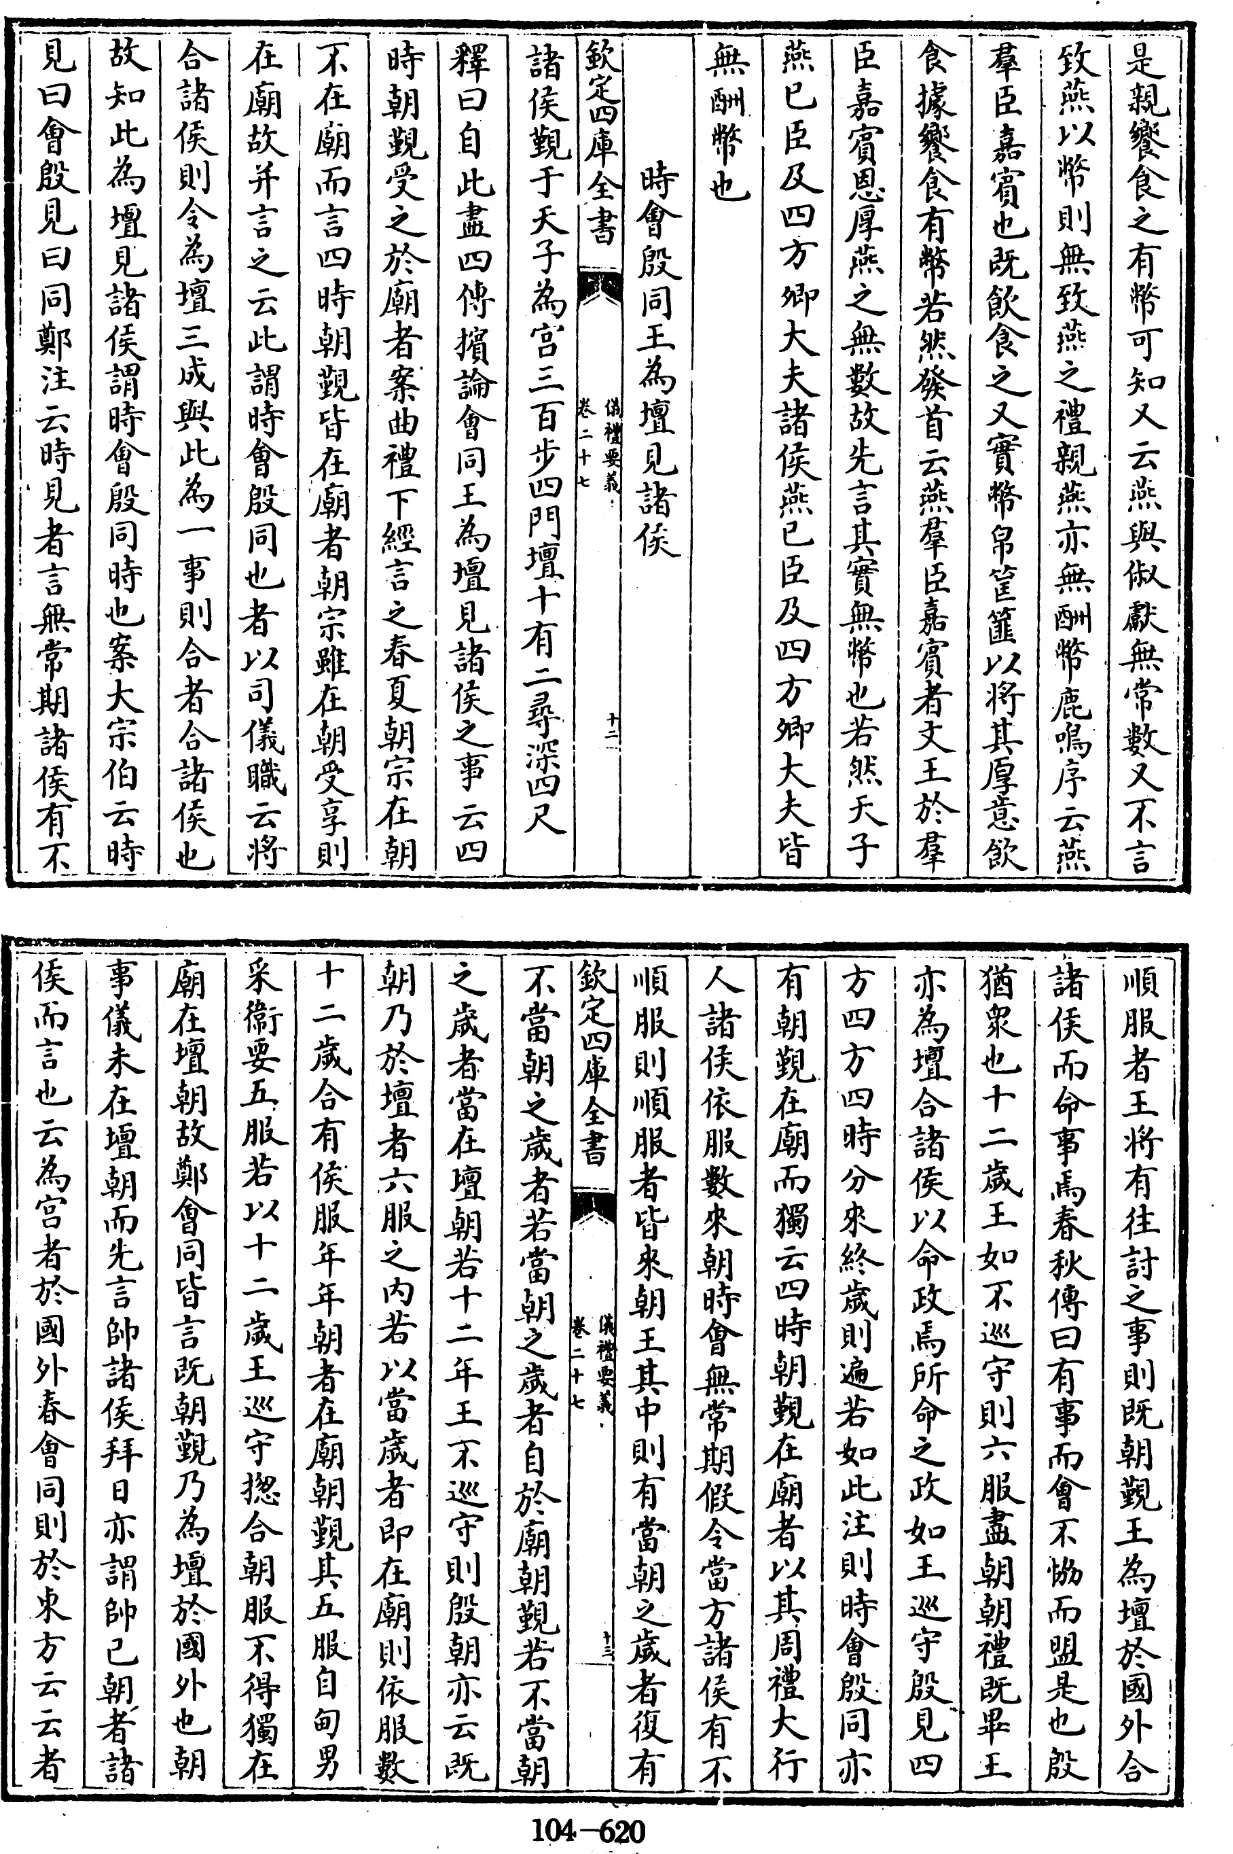 是親饗食之有幣可知又云燕與俶獻無常數又不言
致燕以幣則無致燕之禮親燕亦無酬幣鹿鳴序云燕
羣臣嘉賓也既飲食之又實幣帛筐篚以將其厚意飲
食據饗食有幣若然發首云燕羣臣嘉賓者文王於羣
臣嘉賓恩厚燕之無數故先言其實無幣也若然天子
燕已臣及四方卿大夫諸侯燕已臣及四方卿大夫皆
無酬幣也
時會殷同王為壇見諸侯
欽定四庫全書
儀禮要義
卷二十七
十二
諸侯覲于天子為宮三百步四門壇十有二尋深四尺
釋曰自此盡四傳擯論會同王為壇見諸侯之事云四
時朝覲受之於廟者案曲禮下經言之春夏朝宗在朝
不在廟而言四時朝覲皆在廟者朝宗雖在朝受享則
在廟故并言之云此謂時會殷同也者以司儀職云將
合諸侯則令為壇三成與此為一事則合者合諸侯也
故知此為壇見諸侯謂時會殷同時也案大宗伯云時
見曰會殷見曰同鄭注云時見者言無常期諸侯有不
順服者王將有往討之事則既朝覲王為壇於國外合
諸侯而命事焉春秋傳曰有事而會不協而盟是也殷
猶衆也十二歲王如不巡守則六服盡朝朝禮既畢王
亦為壇合諸侯以命政焉所命之政如王巡守殷見四
方四方四時分來終歲則遍若如此注則時會殷同亦
有朝覲在廟而獨云四時朝覲在廟者以其周禮大行
人諸侯依服數來朝時會無常期假令當方諸侯有不
順服則順服者皆來朝王其中則有當朝之歲者復有
欽定四庫全書
儀禮要義
卷二十七
十三
不當朝之歲者若當朝之歲者自於廟朝覲若不當朝
之歲者當在壇朝若十二年王不巡守則殷朝亦云既
朝乃於壇者六服之內若以當歲者即在廟則依服數
十二歲合有侯服年年朝者在廟朝覲其五服自甸男
采衞要五服若以十二歲王巡守摠合朝服不得獨在
廟在壇朝故鄭會同皆言既朝覲乃為壇於國外也朝
事儀未在壇朝而先言帥諸侯拜日亦謂帥已朝者諸
侯而言也云為宮者於國外春會同則於東方云云者
104-620